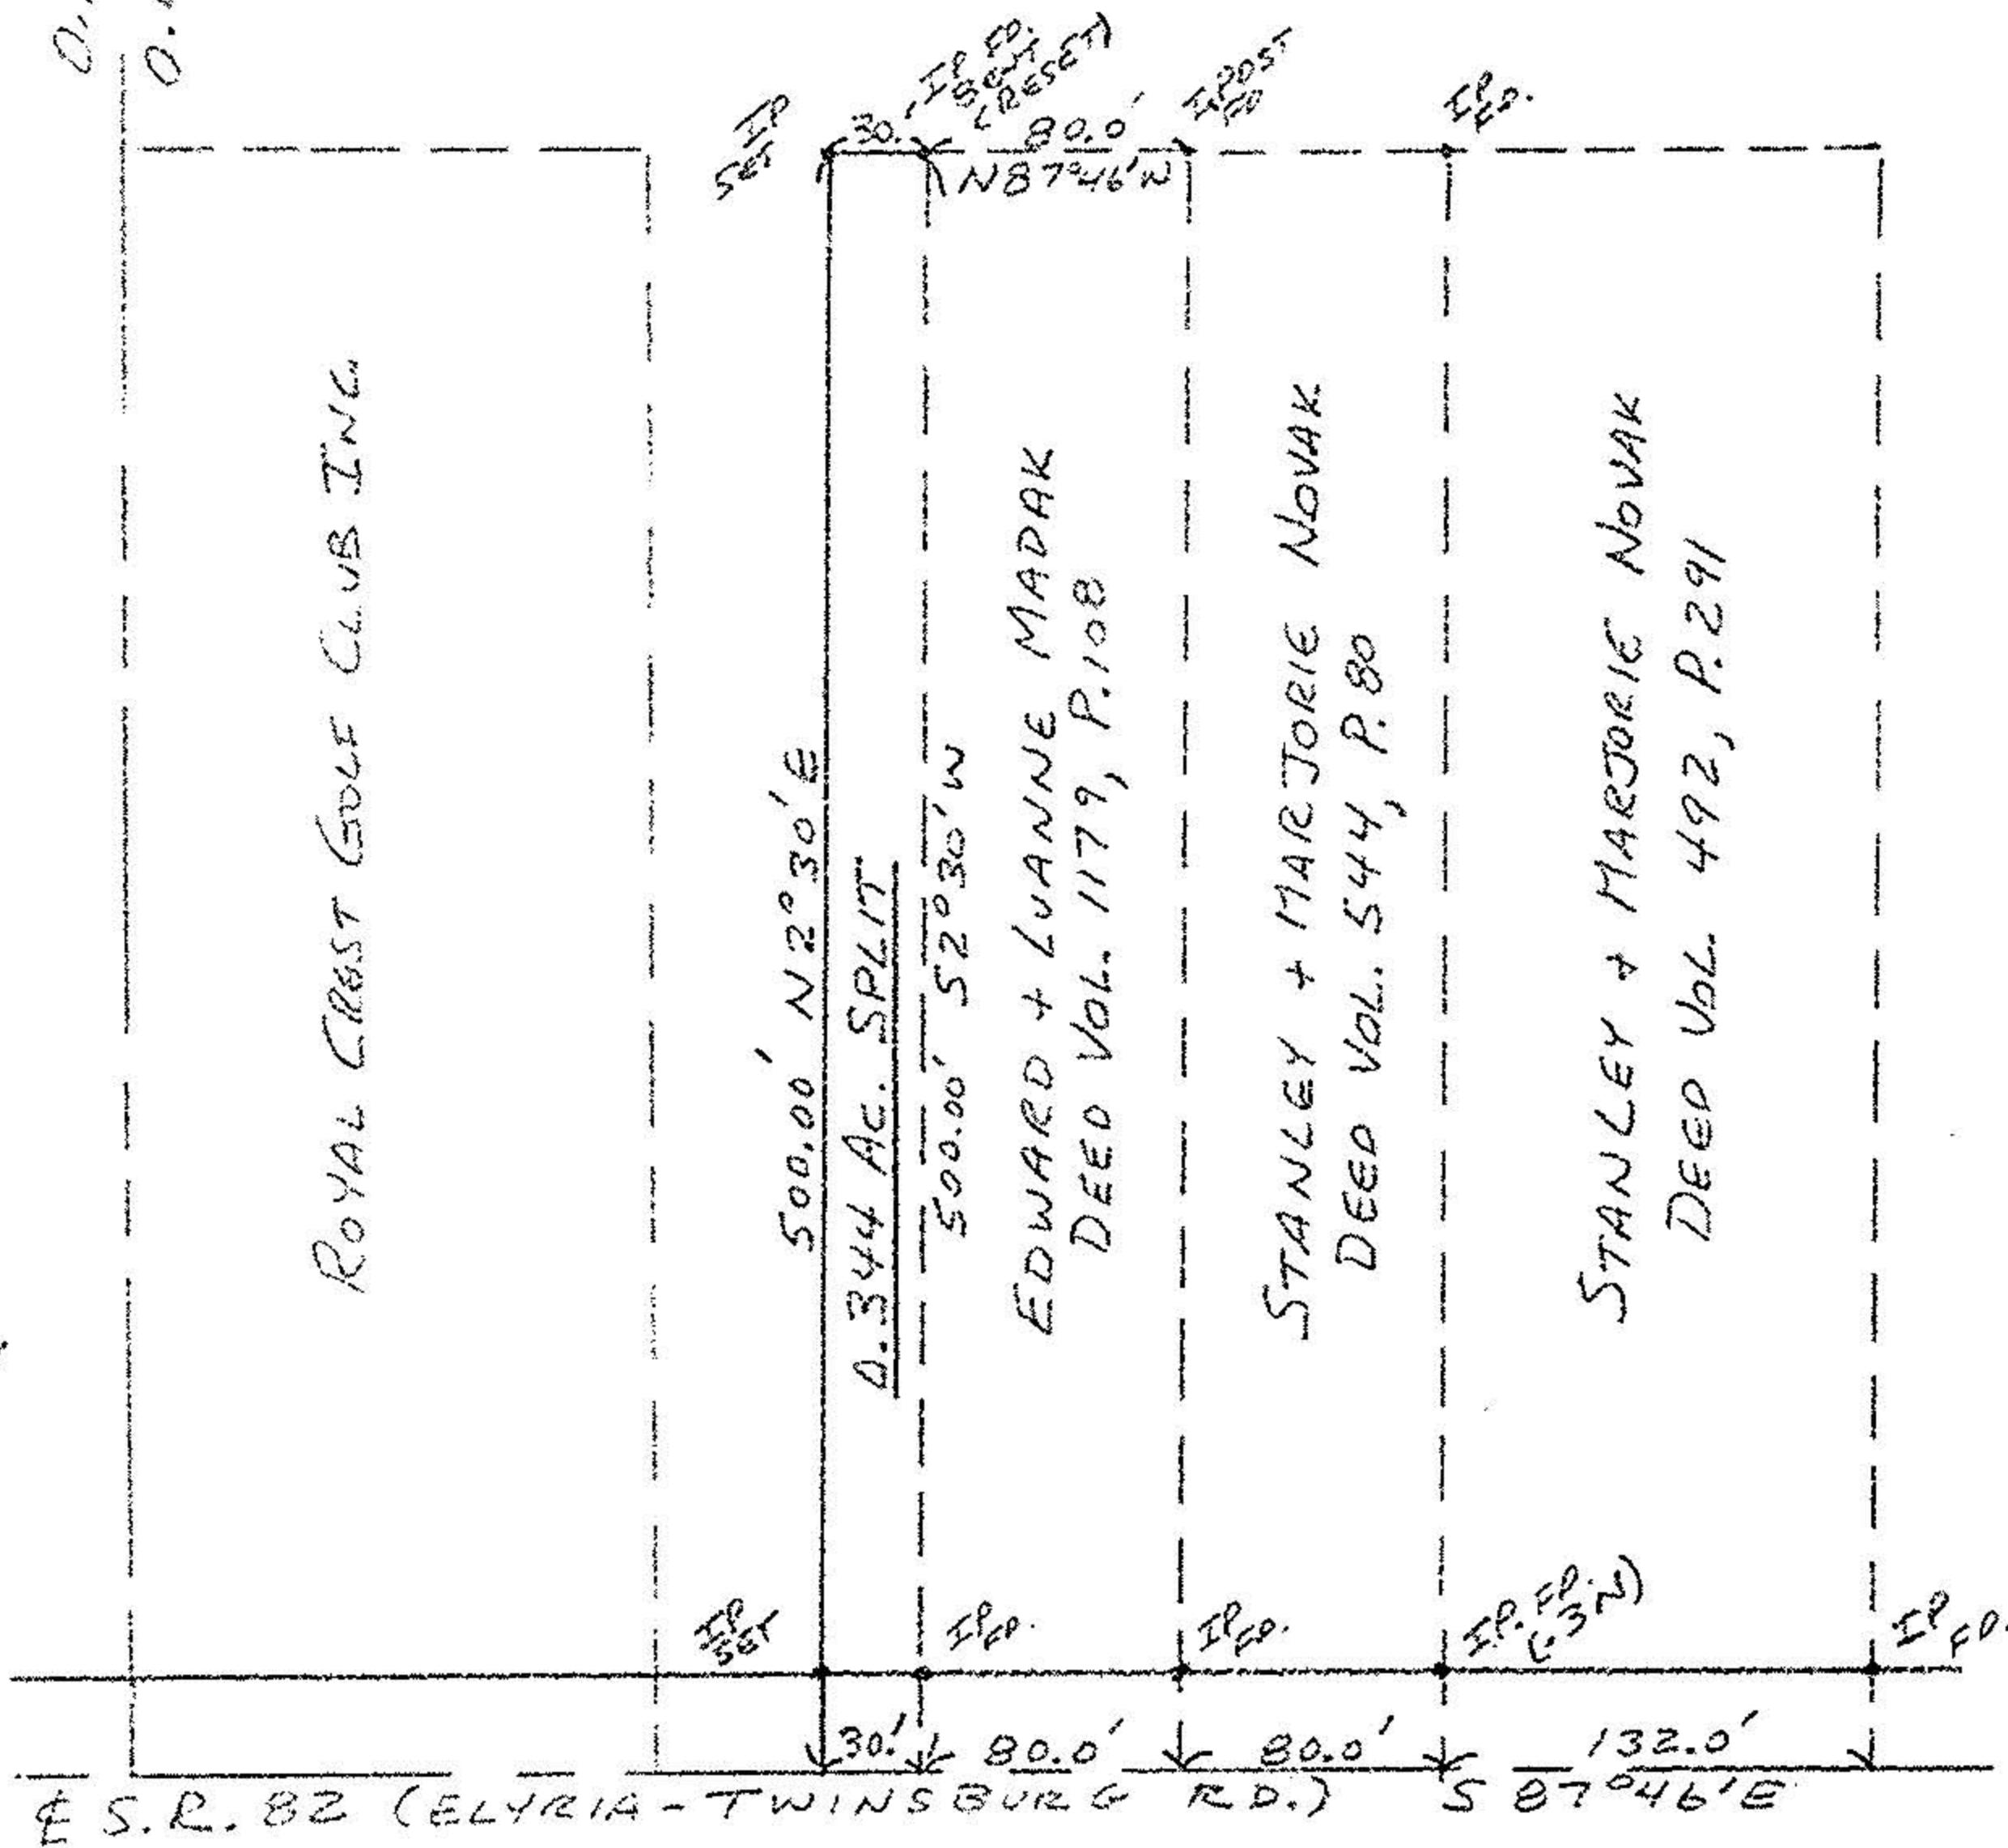 0.
0.
IP
SET
30.'
IP FD.
BENT
(RESET)
80.0'
N87°46'W
I.POST
FD
IP
FD.
ROYAL CREST GOLF CLUB INC
500.00' N2°30'E
0.344 AC. SPLIT
500.00' S2°30'W
EDWARD + LUANNE MADAK
DEED VOL. 1179, P.108
STANLEY + MARJORIE NOVAK
DEED VOL. 544, P. 80
STANLEY + MARJORIE NOVAK
DEED VOL. 492, P.291
IP
SET
IP FD.
IP FD.
IP. FD.
(.3'N)
IP FD.
30.' 80.0' 80.0' 132.0'
℄ S.R. 82 (ELYRIA-TWINSBURG RD.) S 87°46'E